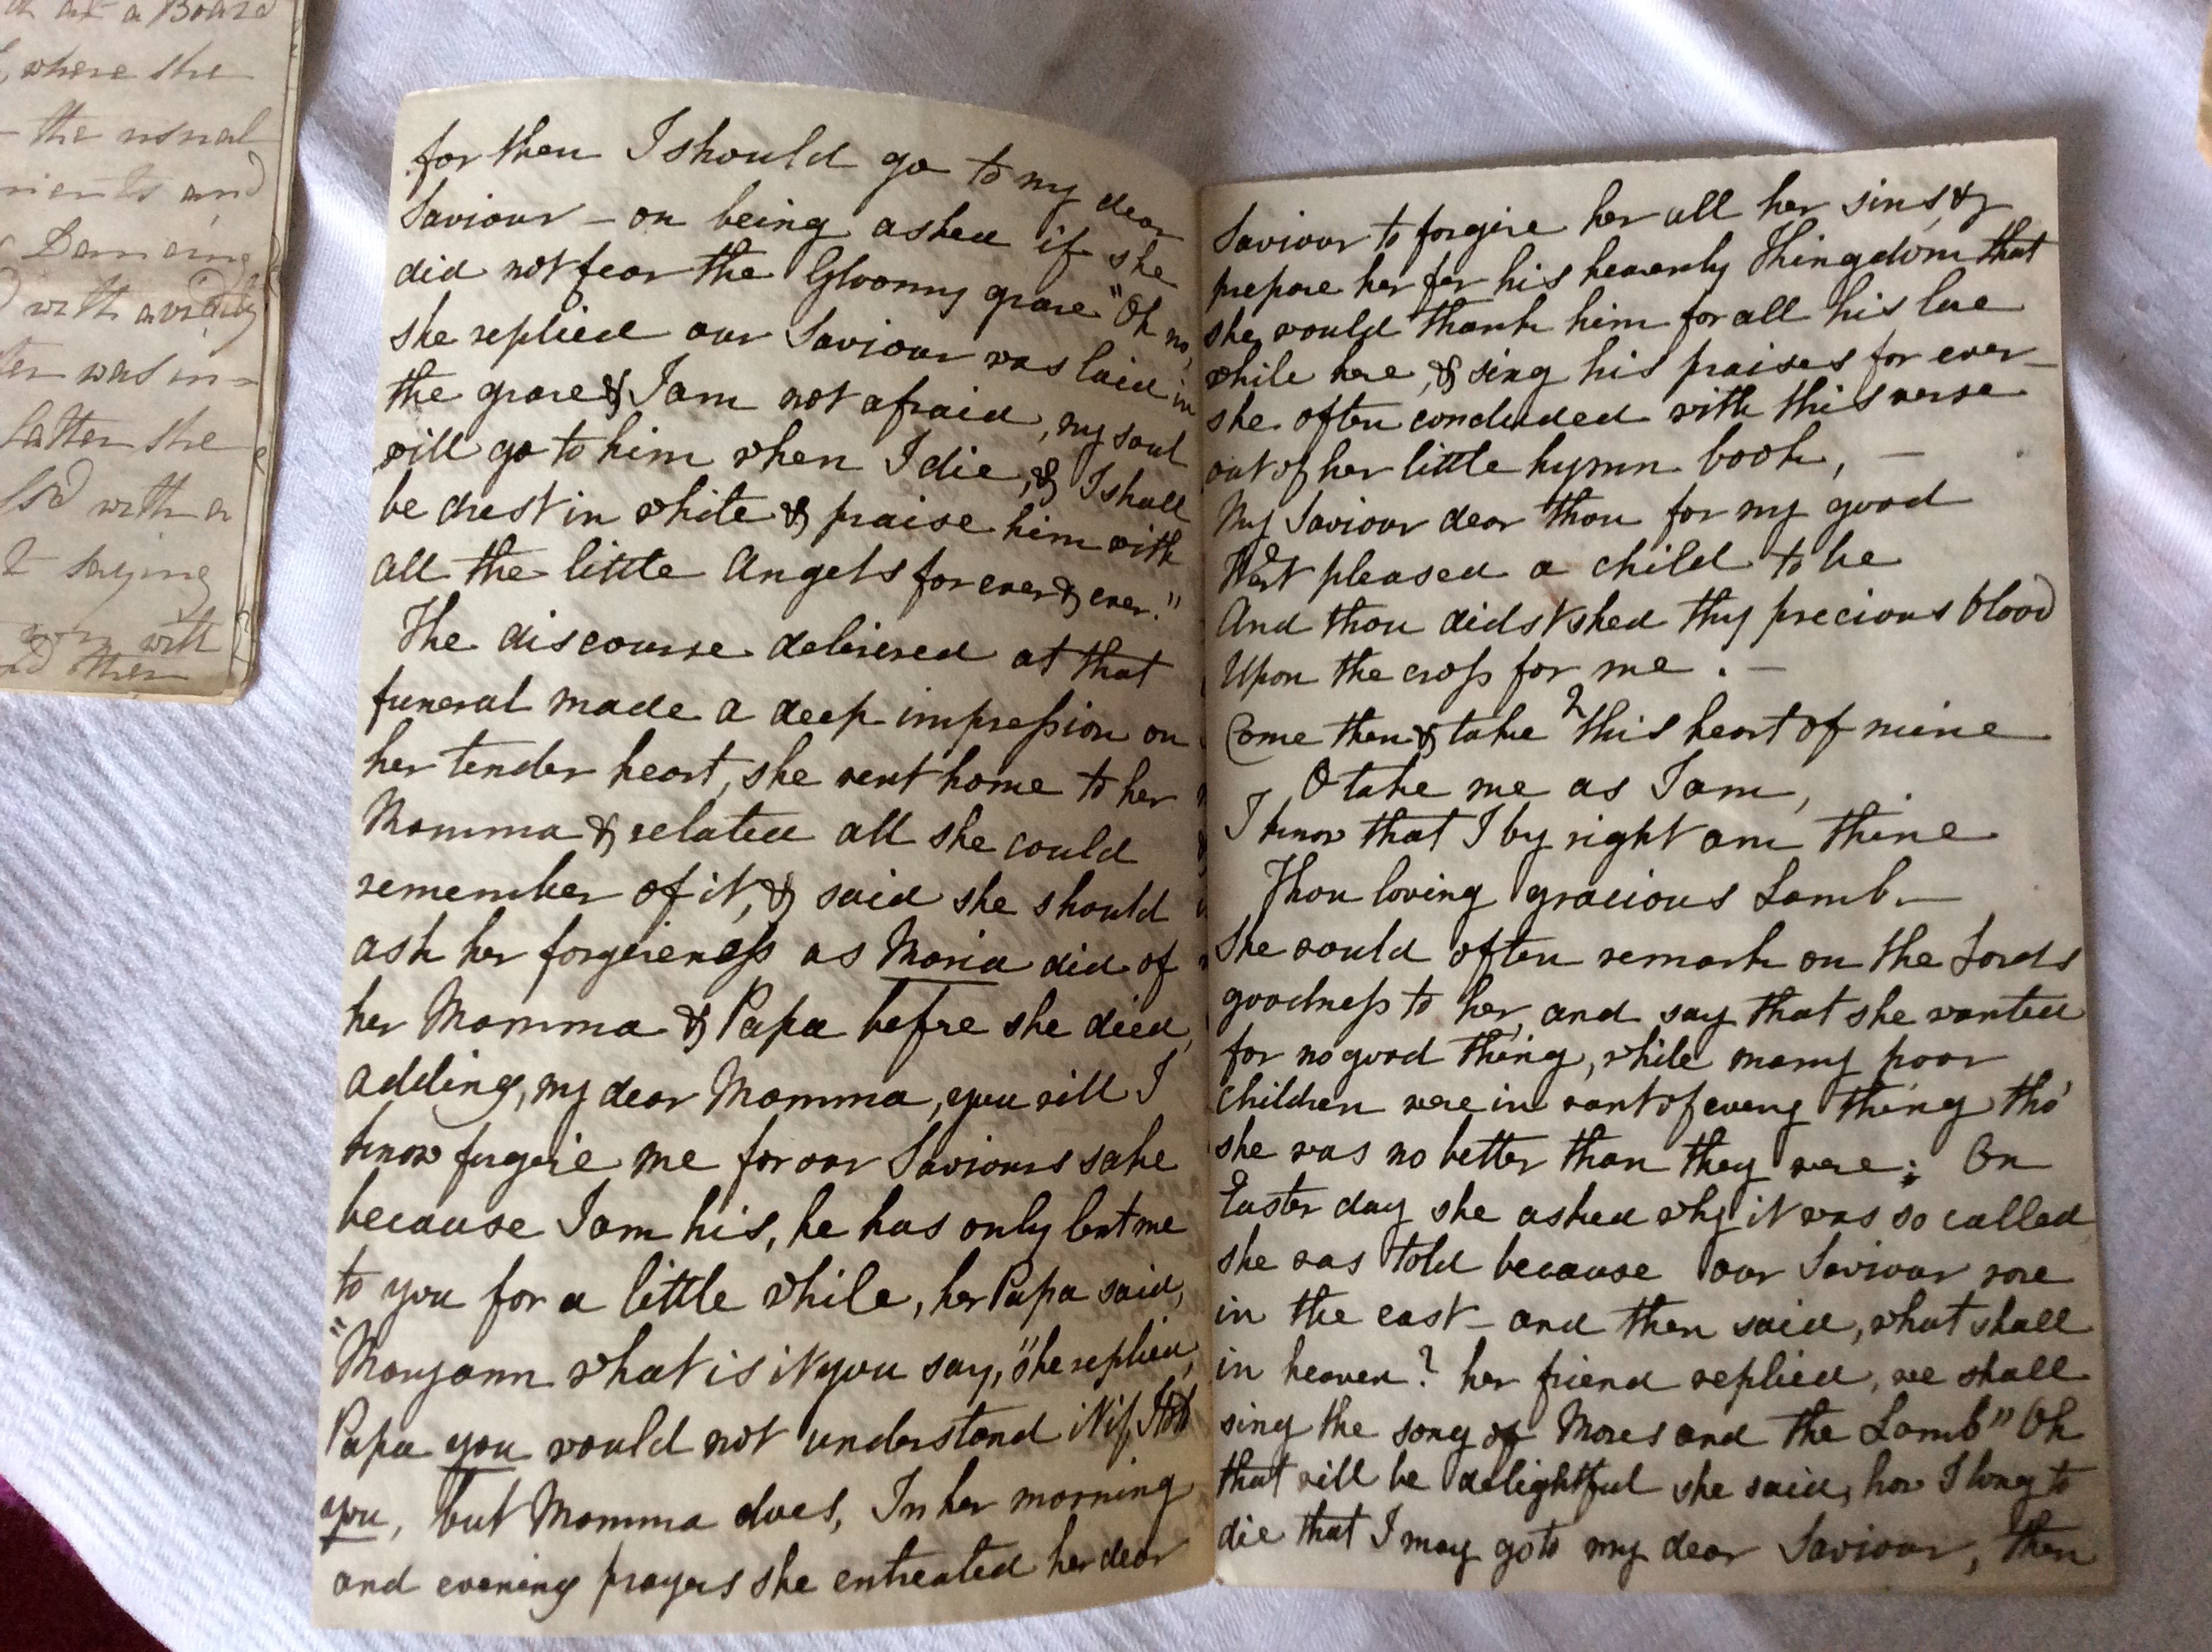 at a Board
where she
the usual
and
with avidity
ter was in=
latter she
with a
saying
with
then
for then I should go to my dear
Saviour – on being asked if she
did not fear the Gloomy grave "Oh no,
she replied our Saviour was laid in
the grave & I am not afraid, my soul
will go to him when I die, & I shall
be drest in white & praise him with
all the little Angels for ever & ever."
The discourse delivered at that
funeral made a deep impression on
her tender heart, she went home to her
Mamma & related all she could
remember of it, & said she should
ask her forgiveness as Maria did of
her Mamma & Papa before she died,
adding, my dear Mamma, you will I
know forgive me for our Saviours sake
because I am his, he has only lent me
to you for a little while, her Papa said,
"Maryann what is it you say," she replied,
Papa you would not understand it if I told
you, but Mamma does, In her morning
and evening prayers she entreated her dear
Saviour to forgive her all her sins, &
prepare her for his heavenly Kingdom that
she would thank him for all his love
while here, & sing his praises for ever –
she often concluded with this verse
out of her little hymn book, –
My Saviour dear thou for my good
Wert pleased a child to be
And thou didst shed thy precious blood
Upon the cross for me. –
Come then & take this heart of mine
O take me as I am,
I know that I by right am thine
Thou loving gracious Lamb. –
She would often remark on the Lords
goodness to her, and say that she wanted
for no good thing, while many poor
children were in want of every thing tho'
she was no better than they were; On
Easter day she asked why it was so called
she was told because our Saviour rose
in the east – and then said, what shall
in heaven? her friend replied, we shall
sing the song of Moses and the Lamb" Oh
that will be delightful she said, how I long to
die that I may go to my dear Saviour, then